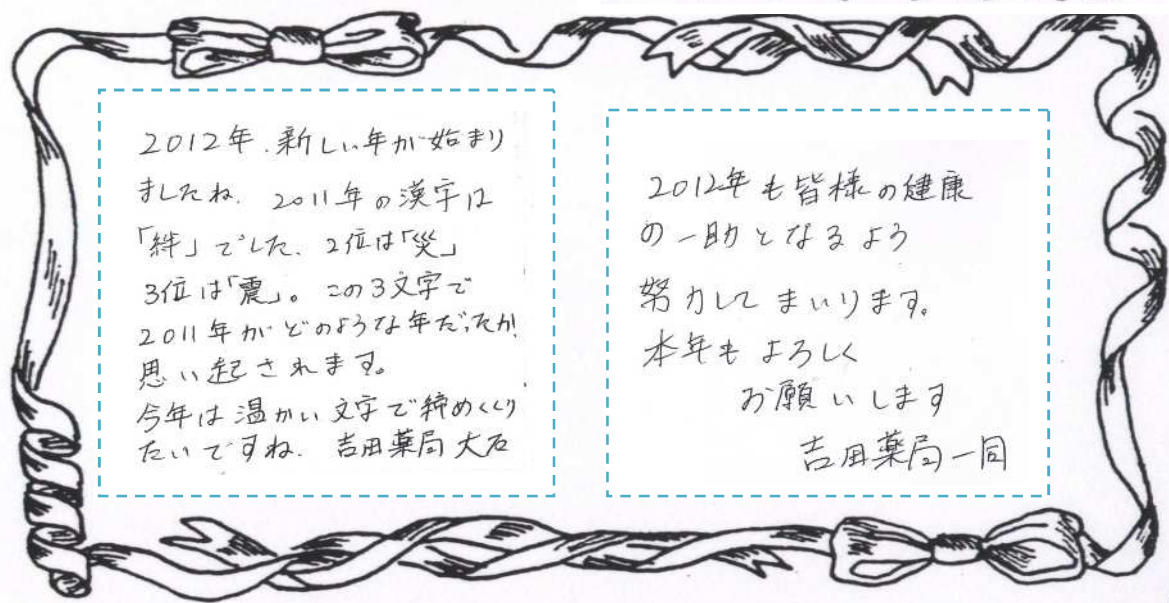 2012年.新しい年が始まり
ましたね. 2011年の漢字は
「絆」でした. 2位は「災」
3位は「震」。この3文字で
2011年がどのような年だったか
思い起されます。
今年は温かい文字で締めくくり
たいですね. 吉田薬局 大石
2012年も皆様の健康
の一助となるよう
努力してまいります。
本年もよろしく
お願いします
吉田薬局一同